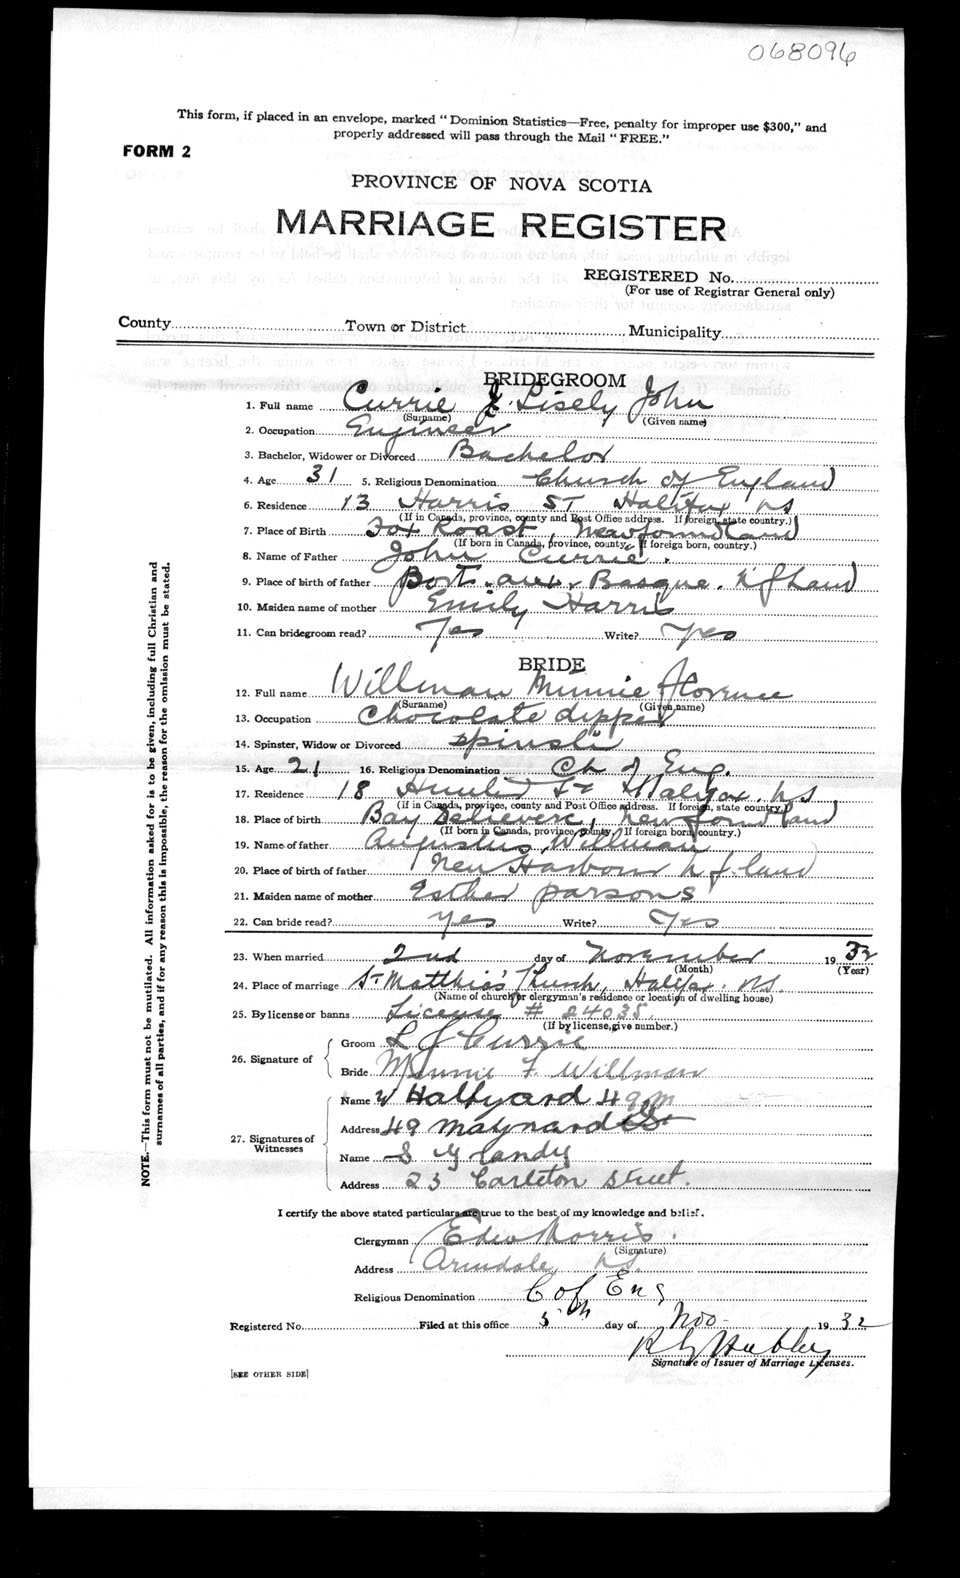 068096
This form, if placed in an envelope, marked "Dominion Statistics—Free, penalty for improper use $300," and
properly addressed will pass through the Mail "FREE."
FORM 2
PROVINCE OF NOVA SCOTIA
MARRIAGE REGISTER
REGISTERED No.
(For use of Registrar General only)
County Town or District Municipality
BRIDEGROOM
1. Full name Currie Lisely John
(Surname) (Given name)
2. Occupation Engineer
3. Bachelor, Widower or Divorced Bachelor
4. Age 31 5. Religious Denomination Church of England
6. Residence 13 Harris ST Halifax NS
(If in Canada, province, county and Post Office address. If foreign, state country.)
7. Place of Birth Fox Roast, Newfoundland
(If born in Canada, province, county. If foreign born, country.)
8. Name of Father John Currie.
9. Place of birth of father Port. aux. Basque. Nfland
10. Maiden name of mother Emily Harris
11. Can bridegroom read? Yes Write? Yes
BRIDE
12. Full name Willman Minnie Florence
(Surname) (Given name)
13. Occupation Chocolate dipper
14. Spinster, Widow or Divorced Spinster
15. Age 21 16. Religious Denomination Ch of Eng.
17. Residence 18 St Halifax. NS
(If in Canada, province, county and Post Office address. If foreign, state country.)
18. Place of birth Bay Newfoundland
(If born in Canada, province, county. If foreign born, country.)
19. Name of father Augustus Willman
20. Place of birth of father New Harbour N.f.land
21. Maiden name of mother Esther parsons
22. Can bride read? yes Write? Yes
23. When married 2nd day of November 1932
(Month) (Year)
24. Place of marriage St Matthias' Church, Halifax. NS.
(Name of church or clergyman's residence or location of dwelling house)
25. By license or banns License # 24035.
(If by license, give number.)
26. Signature of
Groom L J Currie
Bride Minnie F. Willman
27. Signatures of
Witnesses
Name W Hallyard 49 M
Address 49 Maynard St
Name
Address 23 Carleton Street.
I certify the above stated particulars are true to the best of my knowledge and belief.
Clergyman Edw Morris.
(Signature)
Address Armdale, NS.
Religious Denomination C of Eng
Registered No. Filed at this office 5th day of Nov- 1932
Signature of Issuer of Marriage Licenses.
[SEE OTHER SIDE]
NOTE.—This form must not be mutilated. All information asked for is to be given, including full Christian and
surnames of all parties, and if for any reason this is impossible, the reason for the omission must be stated.